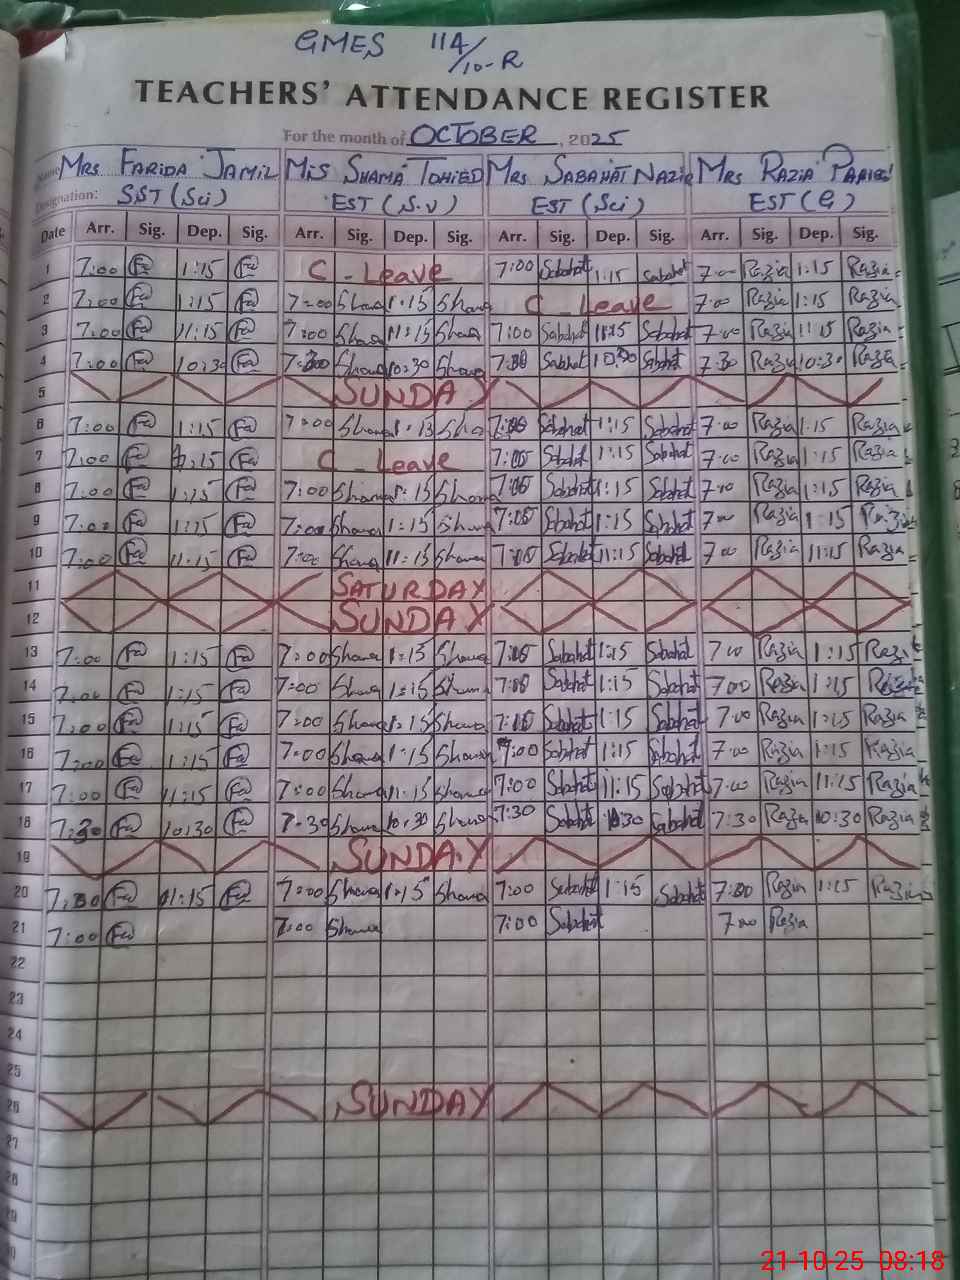 GMES 114/10-R
TEACHERS' ATTENDANCE REGISTER
For the month of OCTOBER, 2025
Name: Mrs FARIDA JAMIL Miss SHAMA TOHIED Mrs SABAHAT NAZIR Mrs RAZIA
Designation: SST (Sci) EST (S.V) EST (Sci) EST (G)
Date Arr. Sig. Dep. Sig. Arr. Sig. Dep. Sig. Arr. Sig. Dep. Sig. Arr. Sig. Dep. Sig.
1 7:00 Fa 1:15 Fa C-Leave 7:00 Sabahat 1:15 Sabahat 7:00 Razia 1:15 Razia
2 7:00 Fa 1:15 Fa 7:00 Shama 1:15 Shama C-Leave 7:00 Razia 1:15 Razia
3 7:00 Fa 11:15 Fa 7:00 Shama 11:15 Shama 7:00 Sabahat 11:15 Sabahat 7:00 Razia 11:15 Razia
4 7:00 Fa 10:30 Fa 7:30 Shama 10:30 Shama 7:30 Sabahat 10:30 Sabahat 7:30 Razia 10:30 Razia
5 SUNDAY
6 7:00 Fa 1:15 Fa 7:00 Shama 1:15 Sha 7:00 Sabahat 1:15 Sabahat 7:00 Razia 1:15 Razia
7 7:00 Fa 1:15 Fa C-Leave 7:00 Sabahat 1:15 Sabahat 7:00 Razia 1:15 Razia
8 7:00 Fa 1:15 Fa 7:00 Shama 1:15 Shama 7:00 Sabahat 1:15 Sabahat 7:00 Razia 1:15 Razia
9 7:00 Fa 1:15 Fa 7:00 Shama 1:15 Shama 7:00 Sabahat 1:15 Sabahat 7:00 Razia 1:15 Razia
10 7:00 Fa 11:15 Fa 7:00 Shama 11:15 Shama 7:00 Sabahat 11:15 Sabahat 7:00 Razia 11:15 Razia
11 SATURDAY
12 SUNDAY
13 7:00 Fa 1:15 Fa 7:00 Shama 1:15 Shama 7:00 Sabahat 1:15 Sabahat 7:00 Razia 1:15 Razia
14 7:00 Fa 1:15 Fa 7:00 Shama 1:15 Shama 7:00 Sabahat 1:15 Sabahat 7:00 Razia 1:15 Razia
15 7:00 Fa 1:15 Fa 7:00 Shama 1:15 Shama 7:00 Sabahat 1:15 Sabahat 7:00 Razia 1:15 Razia
16 7:00 Fa 1:15 Fa 7:00 Shama 1:15 Shama 7:00 Sabahat 1:15 Sabahat 7:00 Razia 1:15 Razia
17 7:00 Fa 11:15 Fa 7:00 Shama 11:15 Shama 7:00 Sabahat 11:15 Sabahat 7:00 Razia 11:15 Razia
18 7:30 Fa 10:30 Fa 7-30 Shama 10:30 Shama 7:30 Sabahat 10:30 Sabahat 7:30 Razia 10:30 Razia
19 SUNDAY
20 7:30 Fa 1:15 Fa 7:00 Shama 1:15 Shama 7:00 Sabahat 1:15 Sabahat 7:00 Razia 1:15 Razia
21 7:00 Fa 7:00 Shama 7:00 Sabahat 7:00 Razia
22
23
24
25
26 SUNDAY
27
28
29
30
21-10-25 08:18